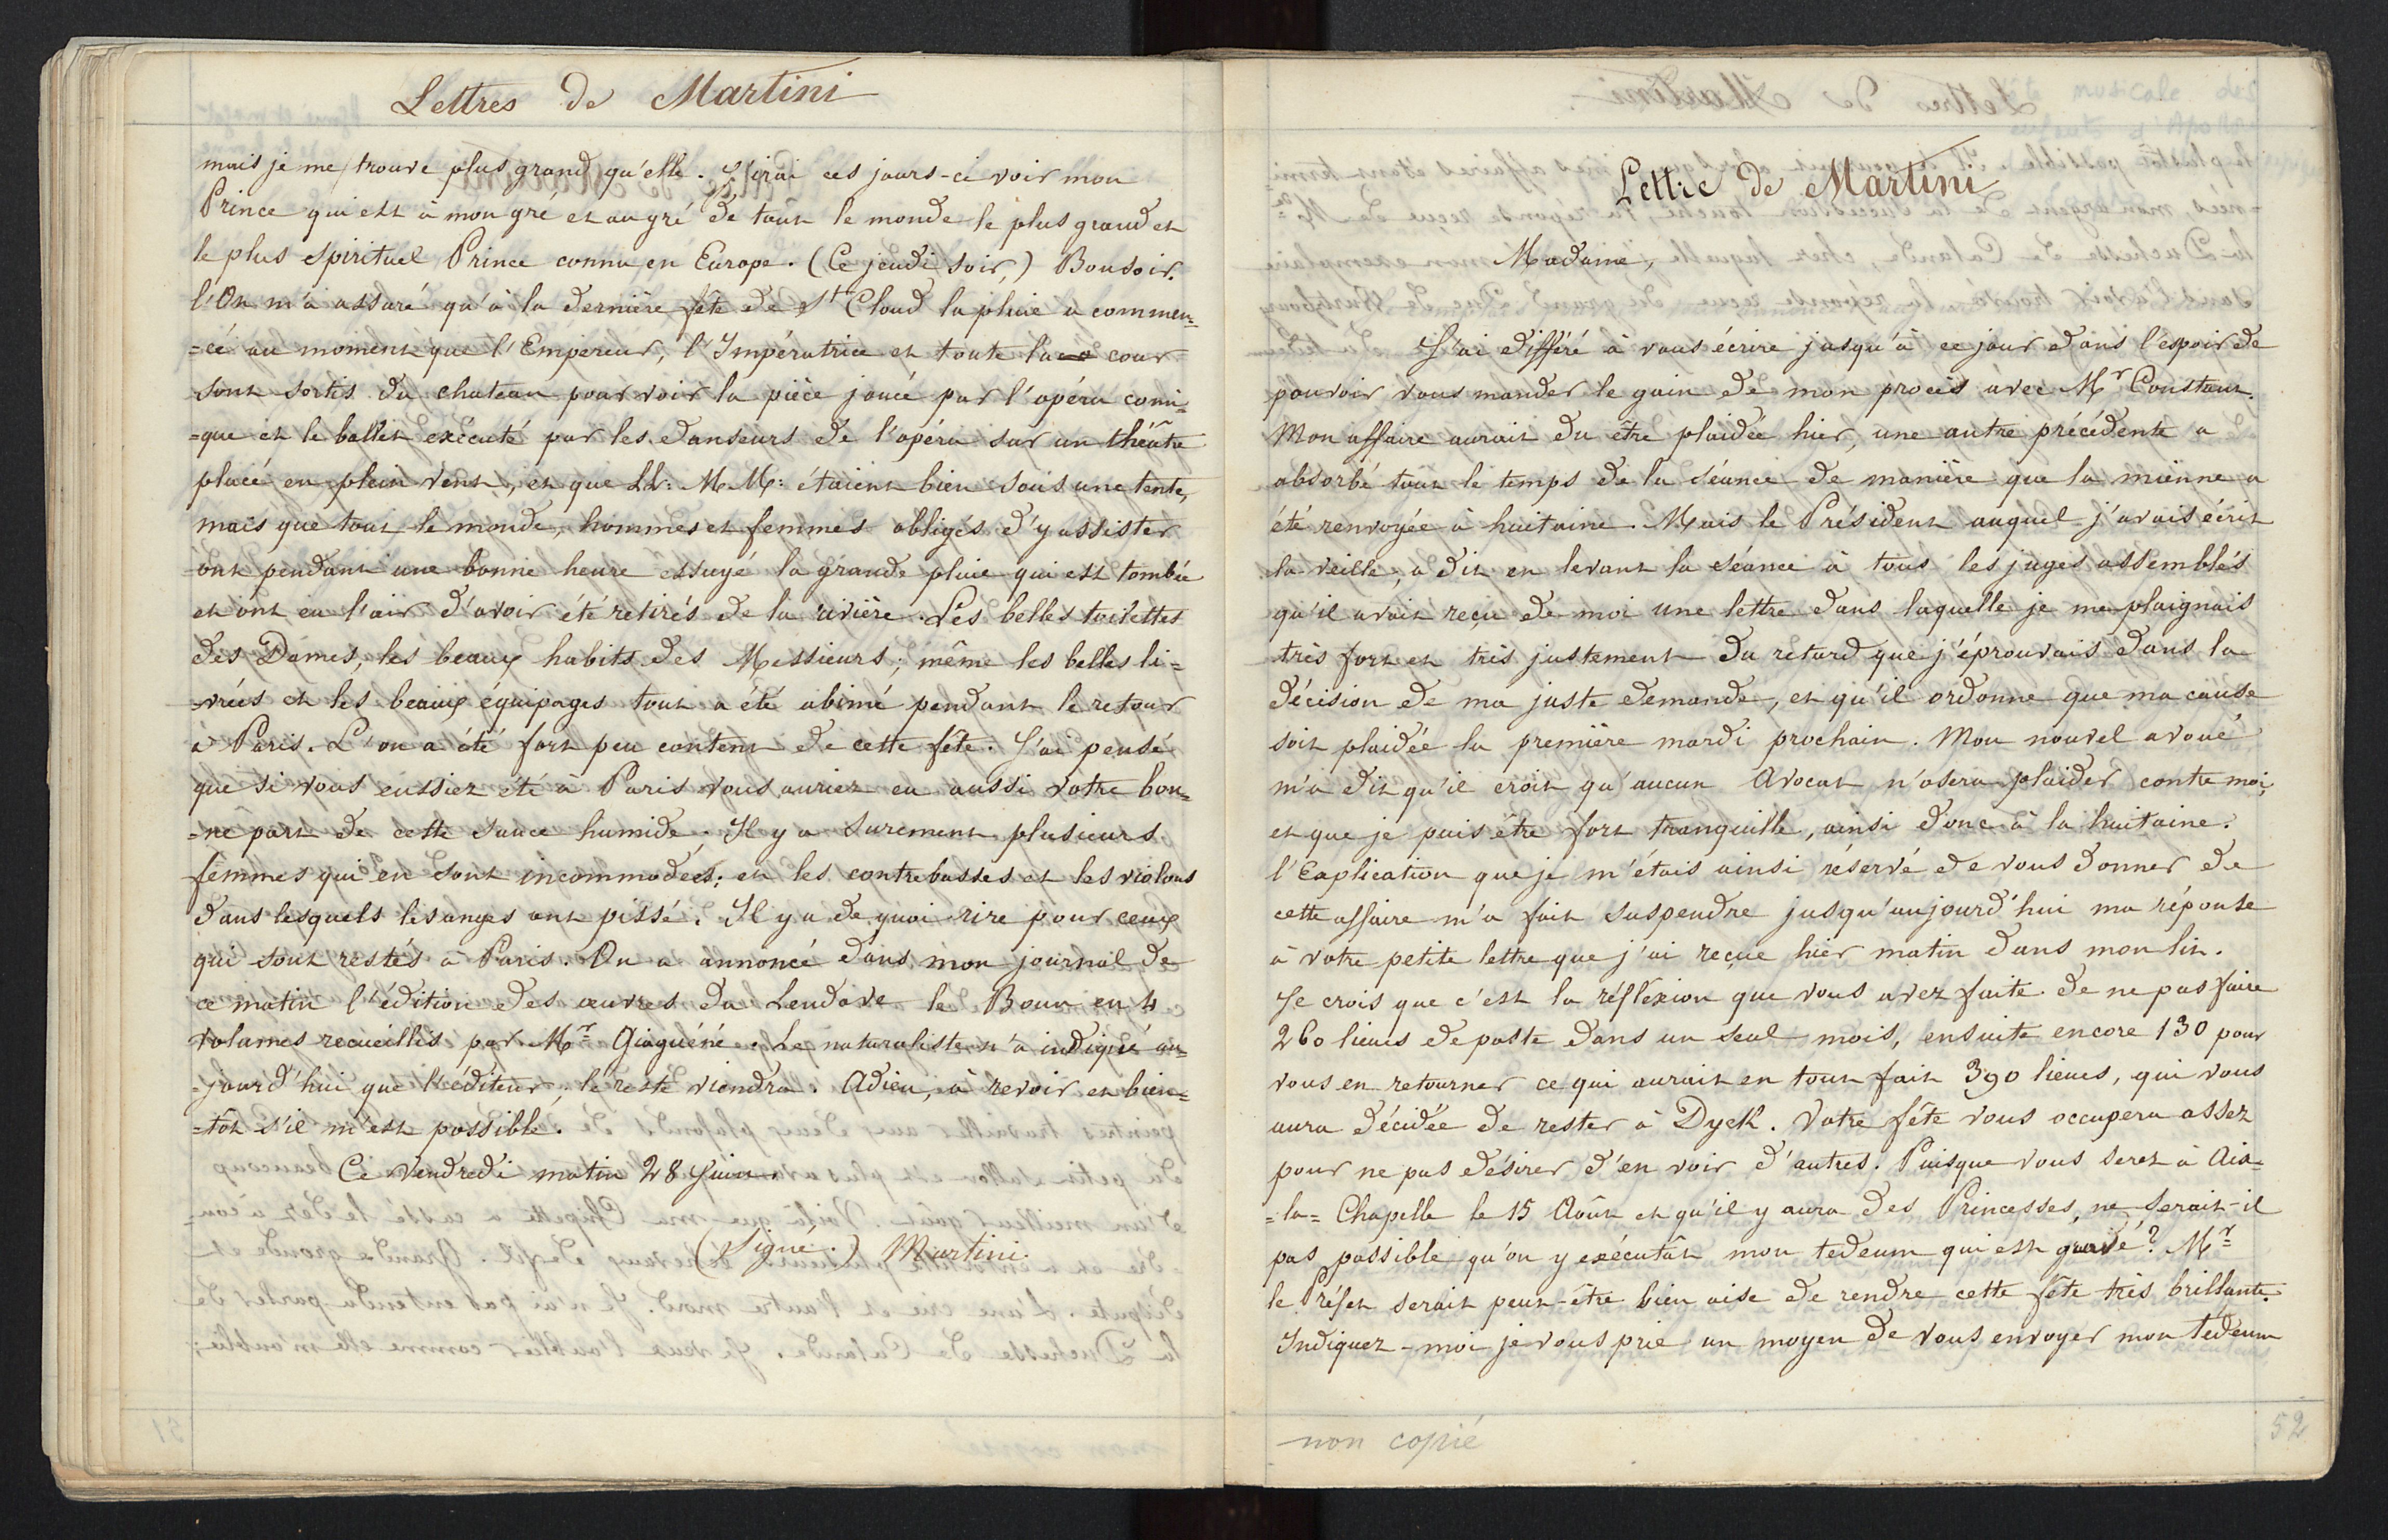 Lettres de Martini
mais je me trouve plus grand qu'elle. J'irai ces jours-ci voir mon
Prince qui est à mon gré et au gré de tout le monde le plus grand et
le plus spirituel Prince connu en Europe. (Ce jeudi soir,) Bonsoir.
l'On m'a assuré qu'à la dernière fête de St Cloud la pluie a commen=
=cé au moment que l'Empereur, l'Impératrice et toute la cour
sont sortis du chateau pour voir la pièce jouée par l'opéra comi=
=que et le ballet exécuté par les danseurs de l'opéra sur un théâtre
placé en plein vent, et que LL: M.M: étaient bien sous une tente,
mais que tout le monde, hommes et femmes obligés d'y assister
ont pendant une bonne heure essuyé la grande pluie qui est tombée
et ont eu l'air d'avoir été retirés de la rivière. Les belles toilettes
des Dames, les beaux habits des Messieurs; même les belles li=
=vrées et les beaux équipages tout a été abimé pendant le retour
à Paris. L'on a été fort peu content de cette fête. J'ai pensé
que si vous eussiez été à Paris vous auriez eu aussi votre bon=
=ne part de cette sauce humide. Il y a surement plusieurs
femmes qui en sont incommodées; et les contrebasses et les violons
dans lesquels les anges ont pissé. Il y a de quoi rire pour ceux
qui sont restés à Paris. On a annoncé dans mon journal de
ce matin l'édition des œuvres du Lendore le Brun en 4
volumes recueillis par Mr Ginguéné. Le naturaliste n'a indiqué au=
=jourd'hui que l'éditeur; le reste viendra. Adieu, à revoir et bien=
=tôt s'il m'est possible.
Ce vendredi matin 28 Juin.
(Signé.) Martini.
Lettre de Martini
Madame,
J'ai différé à vous écrire jusqu'à ce jour dans l'espoir de
pouvoir vous mander le gain de mon procès avec Mr Constant.
Mon affaire aurait du être plaidée hier, une autre précédente a
absorbé tout le temps de la séance de manière que la mienne a
été renvoyée à huitaine. Mais le Président auquel j'avais écrit
la veille, a dit en levant la séance à tous les juges assemblés
qu'il avait reçu de moi une lettre dans laquelle je me plaignais
très fort et très justement du retard que j'éprouvais dans la
décision de ma juste demande, et qu'il ordonne que ma cause
soit plaidée la première mardi prochain. Mon nouvel avoué
m'a dit qu'il croit qu'aucun Avocat n'osera plaider contre moi,
et que je puis être fort tranquille, ainsi donc à la huitaine.
l'Explication que je m'étais ainsi réservé de vous donner de
cette affaire m'a fait suspendre jusqu'aujourd'hui ma réponse
à votre petite lettre que j'ai reçue hier matin dans mon lit.
Je crois que c'est la réflexion que vous avez faite de ne pas faire
260 lieues de poste dans un seul mois, ensuite encore 130 pour
vous en retourner ce qui aurait en tout fait 390 lieues, qui vous
aura décidée de rester à Dyck. Votre fête vous occupera assez
pour ne pas désirer d'en voir d'autres. Puisque vous serez à Aix=
=la=Chapelle le 15 Août et qu'il y aura des Princesses, ne serait-il
pas possible qu'on y exécutât mon tedeum qui est gravé? Mr
le Préfet serait peut-être bien aise de rendre cette fête très brillante.
Indiquez-moi je vous prie un moyen de vous envoyer mon tedeum
non copié
52